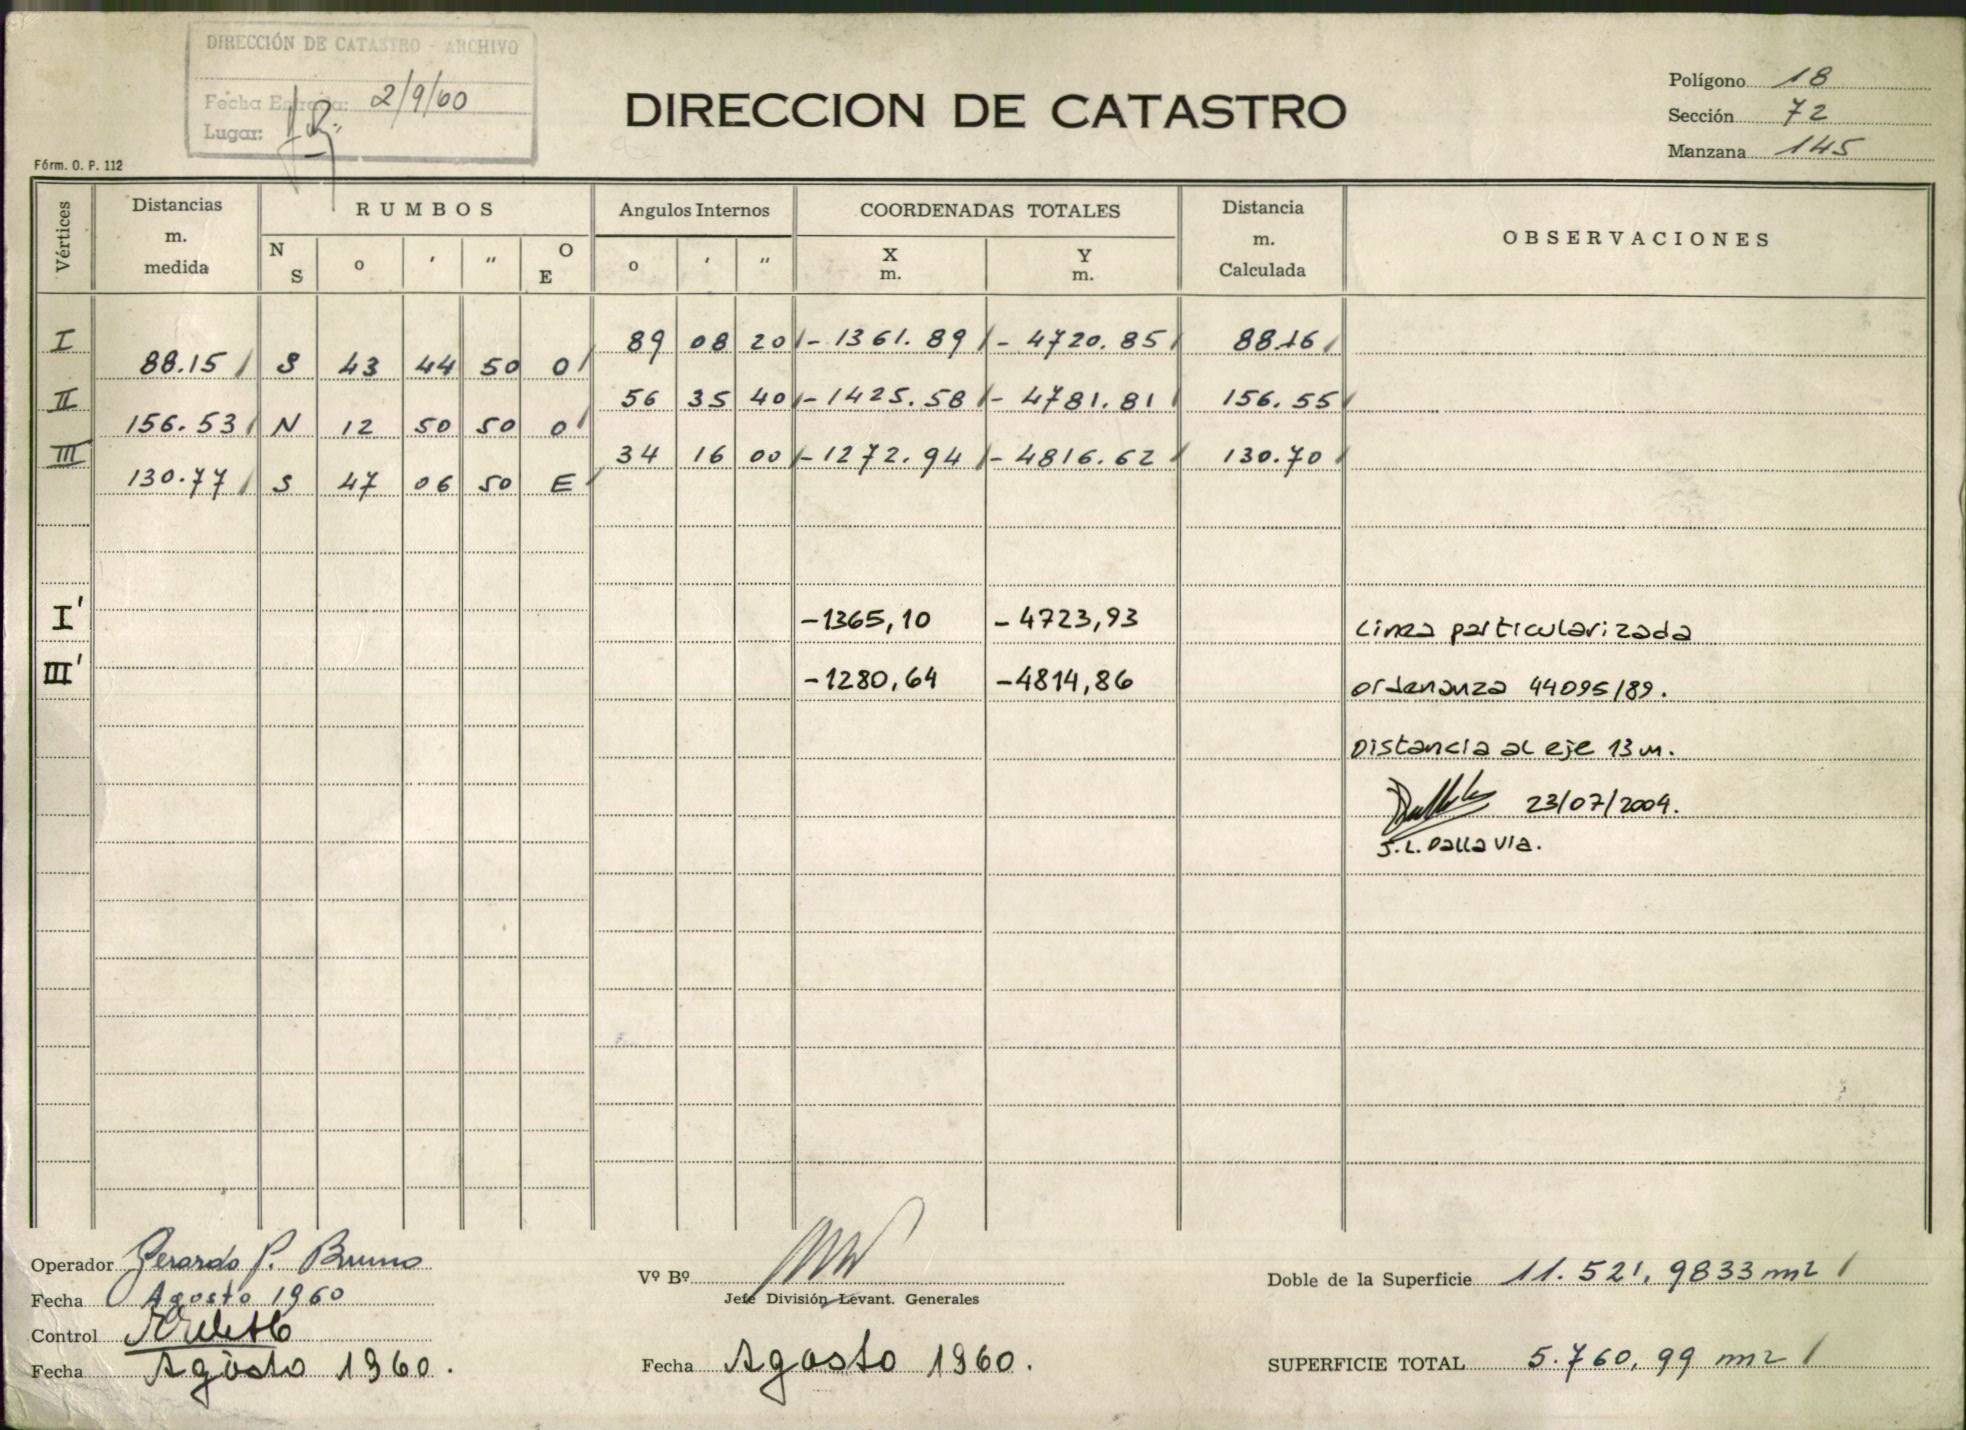 DIRECCIÓN DE CATASTRO - ARCHIVO
Fecha Entrada: 2/9/60
Lugar:
Fórm. O. P. 112
DIRECCION DE CATASTRO
Polígono 18
Sección 72
Manzana 145
Vértices
Distancias m. medida
RUMBOS
N S o ' " O E
Angulos Internos
o ' "
COORDENADAS TOTALES
X m. Y m.
Distancia m. Calculada
OBSERVACIONES
I 89 08 20 - 1361.89 - 4720.85 88.16
88.15 S 43 44 50 O
II 56 35 40 - 1425.58 - 4781.81 156.55
156.53 N 12 50 50 O
III 34 16 00 - 1272.94 - 4816.62 130.70
130.77 S 47 06 50 E
I' -1365,10 - 4723,93 Linea particularizada
III' -1280,64 -4814,86 ordenanza 44095/89.
Distancia al eje 13 m.
23/07/2004.
J.L. Dallavia.
Operador Gerardo P. Bruno
Fecha Agosto 1960
Control
Fecha Agosto 1960.
Vº Bº
Jefe División Levant. Generales
Fecha Agosto 1960.
Doble de la Superficie 11.521,9833 m2
SUPERFICIE TOTAL 5.760,99 m2